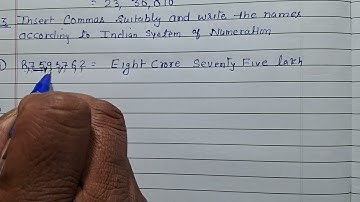 = 23, 30, 010
3 Insert Commas Suitably and write the names
according to Indian System of Numeration
8,75,93,762 = Eight Crore Seventy Five lakh